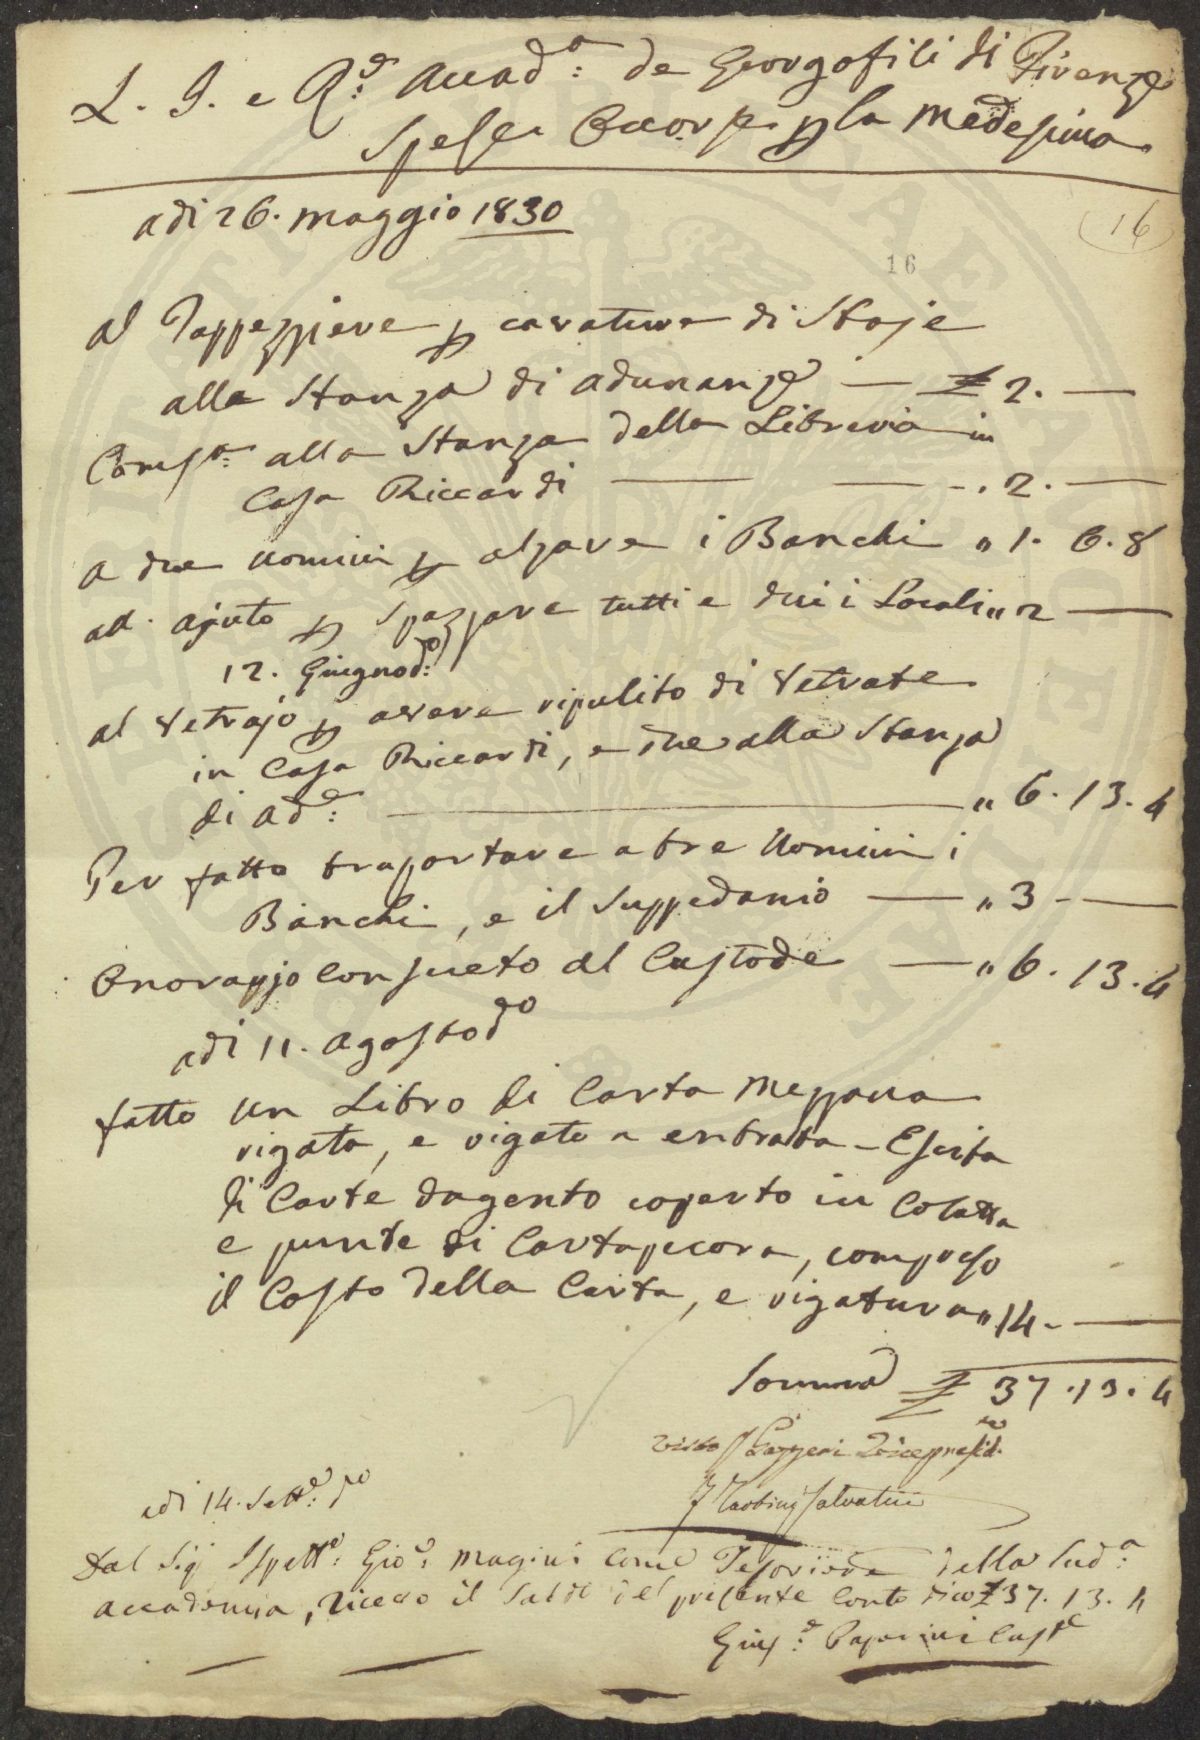 L. I. e R.e Accad.a de Georgofili di Firenze
Spese Occorse p la Medesima
adi 26. Maggio 1830
16
16
al Tappezziere p cavatura di Stoje
alla Stanza di adunanze — £ 2. —
Comp.a alla Stanza della Libreria in
Casa Riccardi — — - . 2. —
a due Uomini p alzare i Banchi " 1. 6. 8
ad. ajuto p Spazzare tutti e dui i Locali " 2 —
12. Giugno d.o
al Vetrajo p avere ripulito di Vetrate
in Casa Riccardi, e due alla Stanza
di Ad.e — " 6. 13. 4
Per fatto traportare a tre Uomini i
Banchi, e il Suppedanio — " 3 - —
Onorazjo Consueto al Custode — " 6. 13. 4
adi 11. Agosto d.o
fatto un Libro di Carta Mezzana
rigata, e rigato a entrata - Escita
di Carte dugento coperto in Colatta
e punte di Cartapecora, compreso
il Costo della Carta, e rigatura " 14 - —
Somma £ 37. 13. 4
visto Gazzeri Vicepresid.
Tartini Salvatici
adi 14. Sett.e d.o
Dal Sig Ispett.e Gio.e Magini Come Tesoriere della Sud.a
Accademia, Ricevo il Saldo del presente Conto dico £ 37. 13. 4
Gius.e Paparini Cust.e